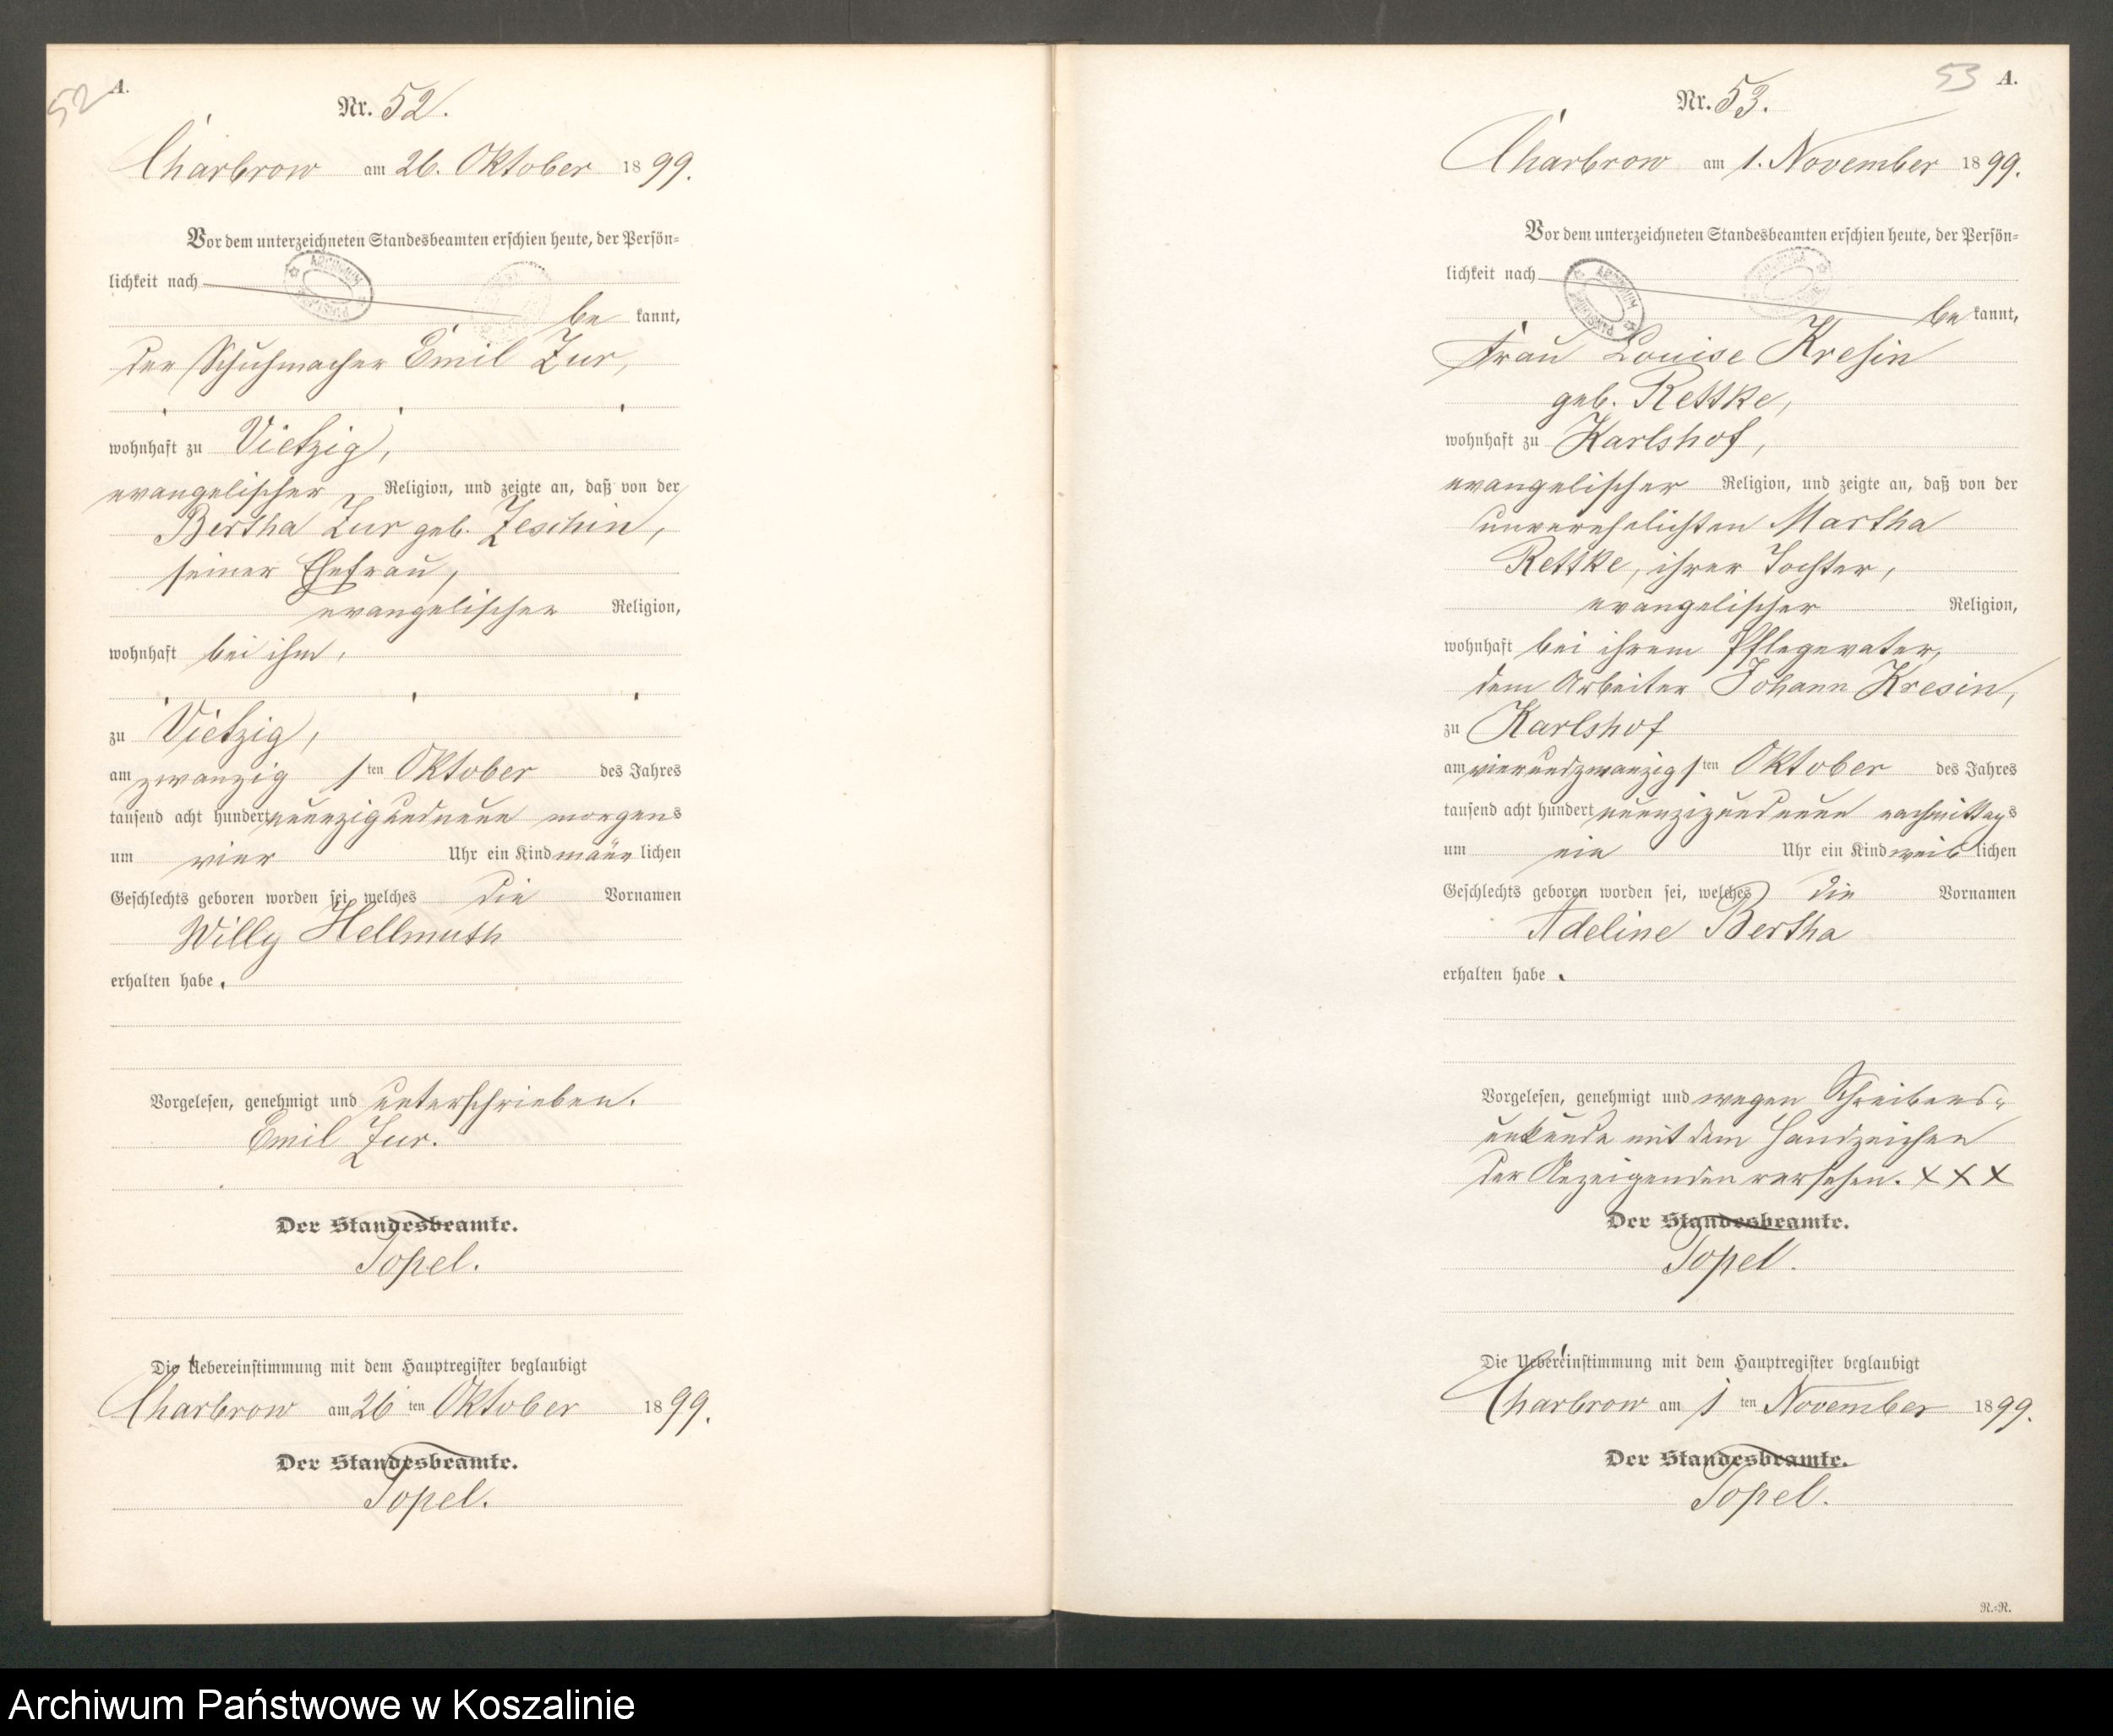 52
A.
Nr. 52.
Charbrow am 26. Oktober 1899.
Vor dem unterzeichneten Standesbeamten erschien heute, der Persön=
lichkeit nach
be kannt,
der Schuhmacher Emil Zur,
wohnhaft zu Vietzig,
evangelischer Religion, und zeigte an, daß von der
Bertha Zur geb. Zeschin,
seiner Ehefrau,
evangelischer Religion,
wohnhaft bei ihm,
zu Vietzig,
am zwanzigsten Oktober des Jahres
tausend acht hundert neunzigundneun morgens
um vier Uhr ein Kind männlichen
Geschlechts geboren worden sei, welches die Vornamen
Willy Hellmuth
erhalten habe.
Vorgelesen, genehmigt und unterschrieben.
Emil Zur.
Der Standesbeamte.
Topel.
Die Uebereinstimmung mit dem Hauptregister beglaubigt
Charbrow am 26ten Oktober 1899.
Der Standesbeamte.
Topel.
53
A.
Nr. 53.
Charbrow am 1. November 1899.
Vor dem unterzeichneten Standesbeamten erschien heute, der Persön=
lichkeit nach
be kannt,
Frau Louise Kresin
geb. Rettke,
wohnhaft zu Karlshof,
evangelischer Religion, und zeigte an, daß von der
unverehelichten Martha
Rettke, ihrer Tochter,
evangelischer Religion,
wohnhaft bei ihrem Pflegevater,
dem Arbeiter Johann Kresin,
zu Karlshof
am vierundzwanzigsten Oktober des Jahres
tausend acht hundert neunzigundneun nachmittags
um ein Uhr ein Kind weiblichen
Geschlechts geboren worden sei, welches die Vornamen
Adeline Bertha
erhalten habe.
Vorgelesen, genehmigt und wegen Schreibens=
unkunde mit dem Handzeichen
der Anzeigenden versehen. XXX
Der Standesbeamte.
Topel.
Die Uebereinstimmung mit dem Hauptregister beglaubigt
Charbrow am 1ten November 1899.
Der Standesbeamte.
Topel.
R.=R.
Archiwum Państwowe w Koszalinie